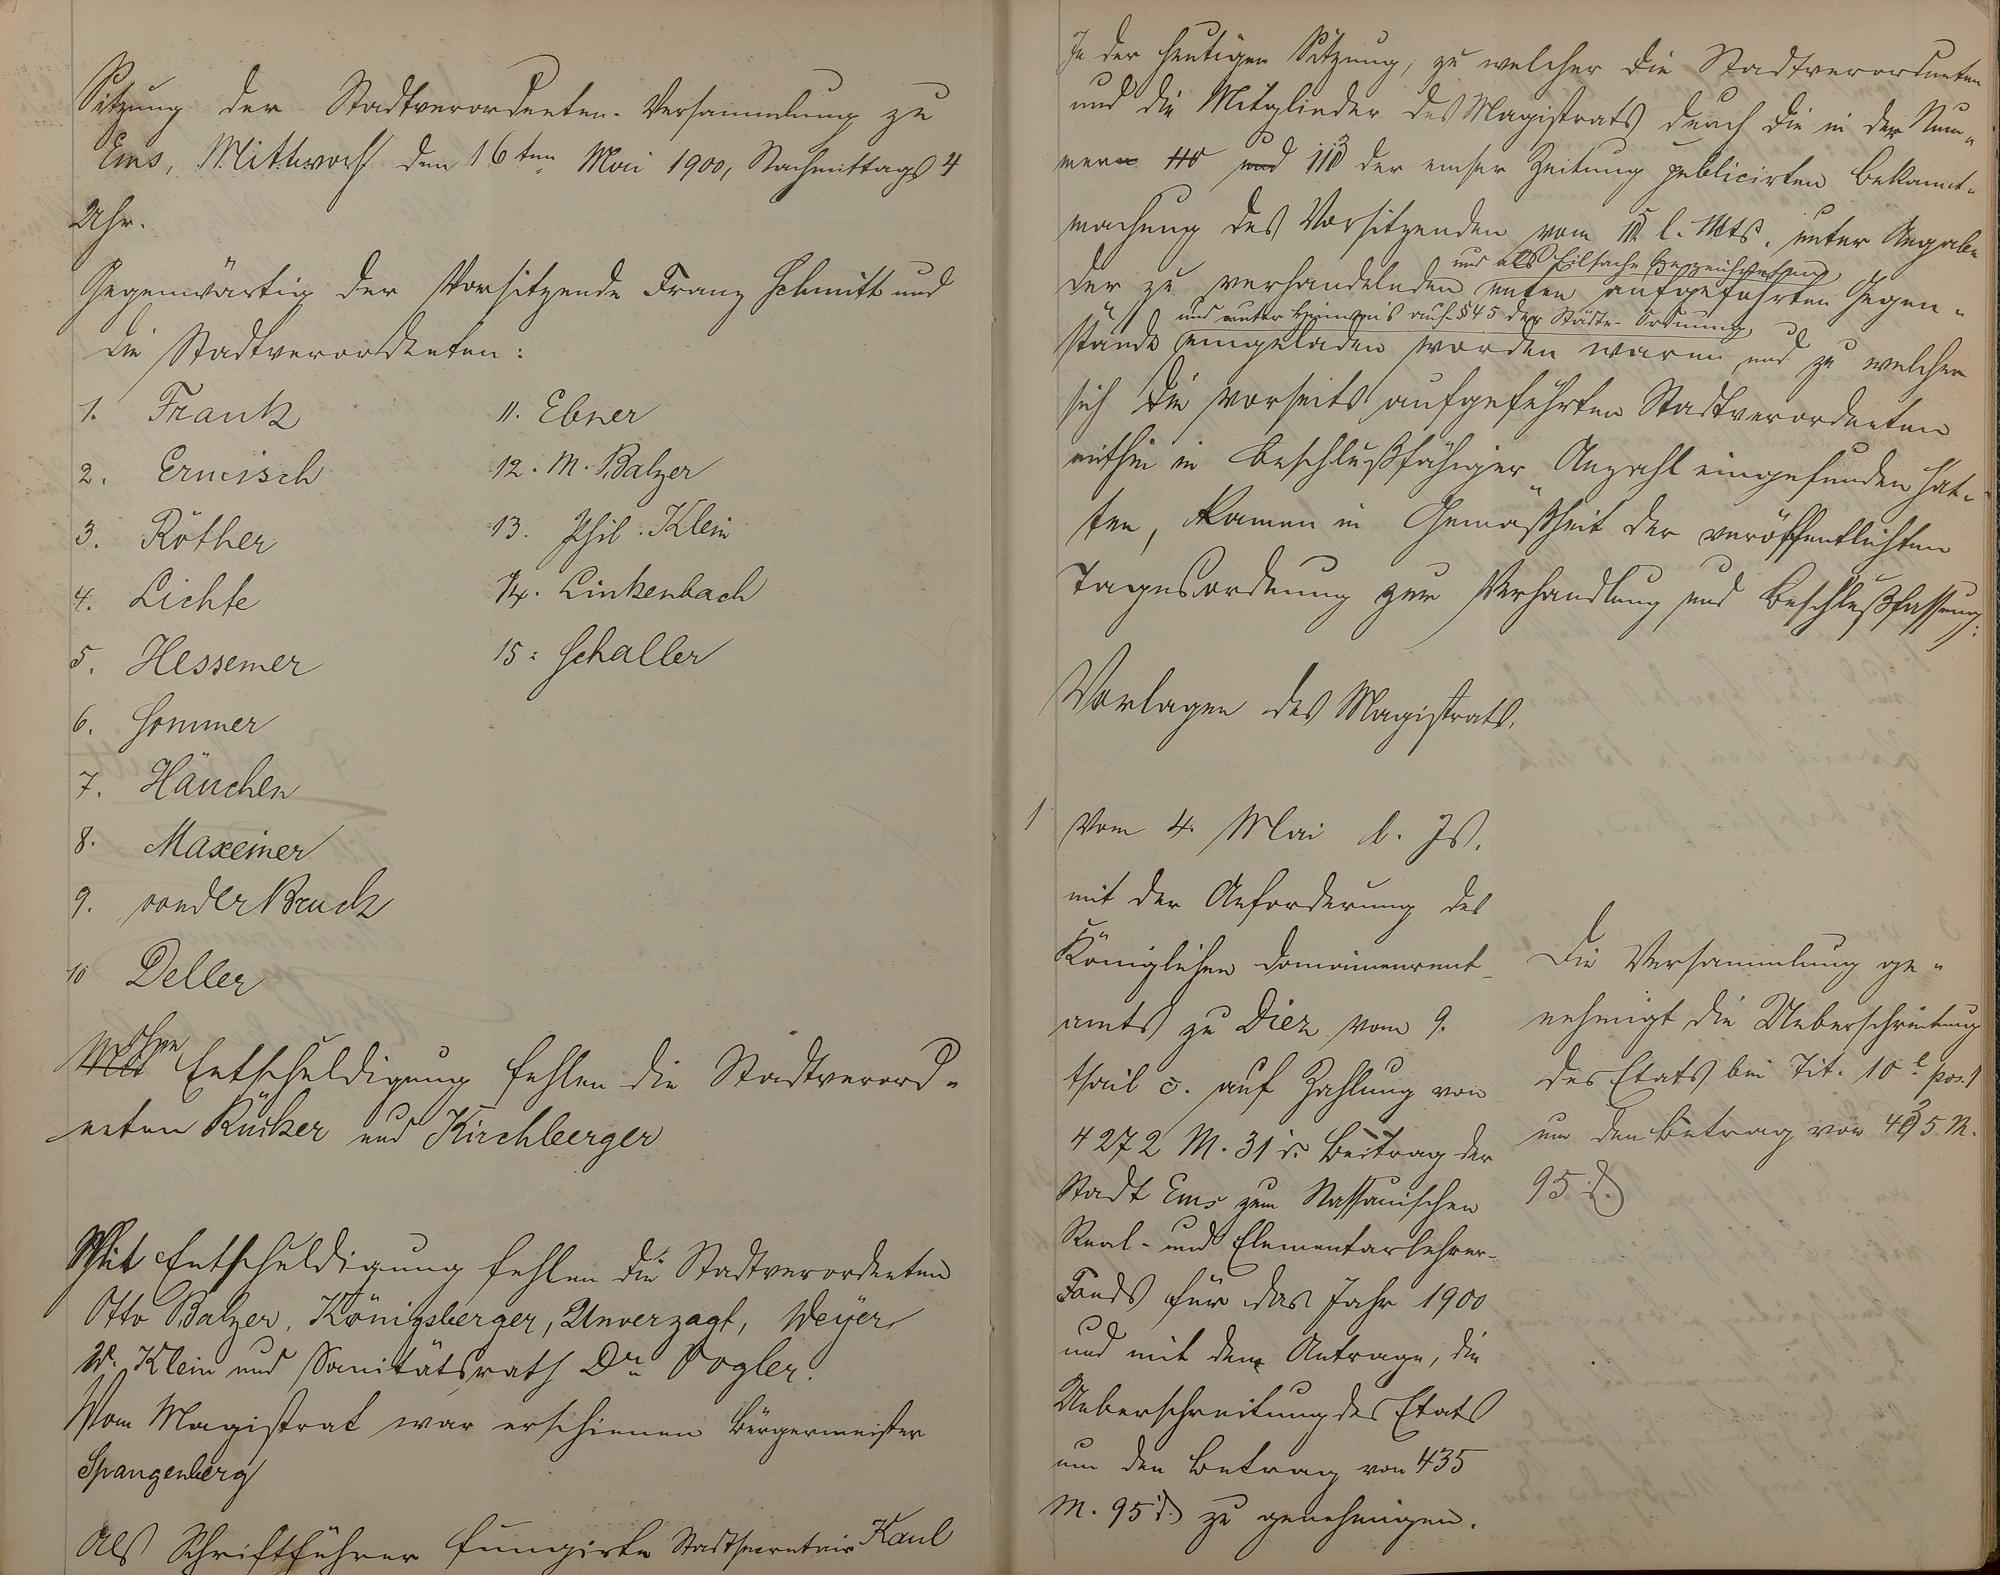 Sitzung der Stadtverordneten-Versammlung zu
Ems, Mittwoch den 16ten Mai 1900, Nachmittags 4
Uhr.
Gegenwärtig der Vorsitzende Franz Schmitt und
die Stadtverordneten:
1. Frank
2. Ermisch
3. Röther
4. Lichte
5. Hessemer
6. Sommer
7. Häuchen
8. Maxeiner
9. von der Bruck
10 Deller
11. Ebner
12. M. Balzer
13. Phil. Klein
14. Linkenbach
15. Schaller
Ohne
Mit Entschuldigung fehlen die Stadtverord-
neten Rücker und Kirchberger
Mit Entschuldigung fehlen die Stadtverordneten
Otto Balzer, Königsberger, Unverzagt, Weyer
W. Klein und Sanitätsrath Dr. Vogler.
Vom Magistrat war erschienen Bürgermeister
Spangenberg
Als Schriftführer fungirte Stadtsecretair Kaul
In der heutigen Sitzung, zu welcher die Stadtverordneten
und die Mitglieder des Magistrats durch die in der Num-
mern 110 und 113 der Emser Zeitung publicirten Bekannt-
machung des Vorsitzenden vom 15 l. Mts. unter Angabe
und als Eilsache bezeichneten
der zu verhandelnden unten aufgeführten Gegen-
und unter Hinweis auf § 45 der Städte-Ordnung
stände eingeladen worden waren und zu welcher
sich die vorseits aufgeführten Stadtverordneten
mithin in beschlußfähiger Anzahl eingefunden hat-
ten, kamen in Gemäßheit der veröffentlichten
Tagesordnung zur Verhandlung und Beschlußfassung:
Vorlagen des Magistrats.
1 vom 4. Mai d. Js.
mit der Anforderung des
Königlichen Domainenrent-
amts zu Diez vom 9.
auf Zahlung von
4272 M. 31 d. Beitrag der
Stadt Ems zum Nassauischen
Real- und Elementarlehrer-
Fonds für das Jahr 1900
und mit dem Antrage, die
Ueberschreitung des Etats
um den Betrag von 435
M. 95 d. zu genehmigen.
Die Versammlung ge-
nehmigt die Ueberschreitung
des Etats bei Tit. 10 pos. 1
um den Betrag von 435 M.
95 d.